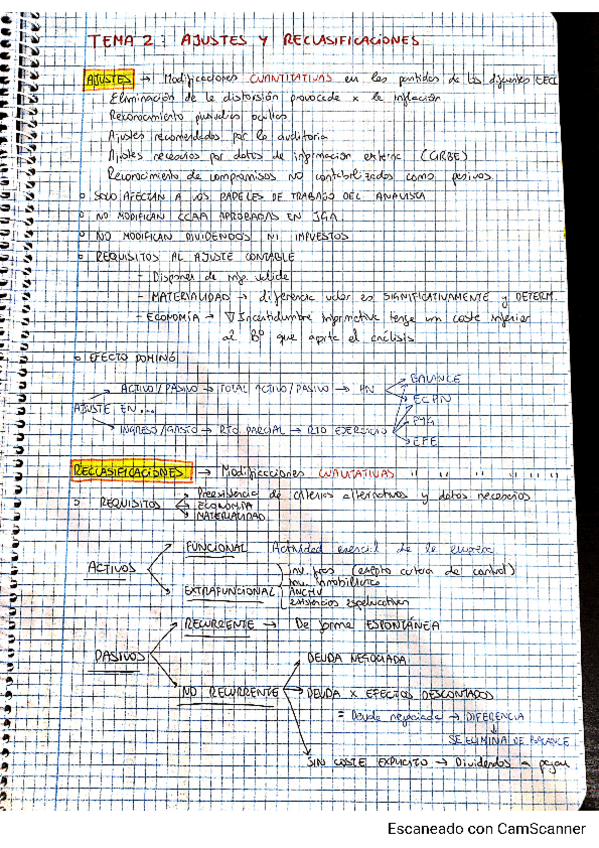 TEMA 2: AJUSTES Y RECLASIFICACIONES
AJUSTES → Modificaciones CUANTITATIVAS en las partidas de los diferentes EECC
Eliminación de la distorsión provocada x la inflación
Reconocimiento pasivos ocultos
Ajustes recomendados por la auditoría
Ajustes necesarios por datos de información externa (CIRBE)
Reconocimiento de compromisos NO contabilizados como pasivos
○ SOLO AFECTAN A LOS PAPELES DE TRABAJO DEL ANALISTA
○ NO MODIFICAN CCAA APROBADAS EN JGA
○ NO MODIFICAN DIVIDENDOS NI IMPUESTOS
○ REQUISITOS AL AJUSTE CONTABLE
- Disponer de válida
- MATERIALIDAD → diferencia valor es SIGNIFICATIVAMENTE y DETERM.
- ECONOMÍA → ∇ Incertidumbre informativa tenga un coste inferior
al Bº que aporta el análisis
○ EFECTO DOMINÓ
BALANCE
ACTIVO/PASIVO → TOTAL ACTIVO/PASIVO → PN
ECPN
AJUSTE EN...
PYG
INGRESO/GASTO → RTO PARCIAL → RTO EJERCICIO
EFE
RECLASIFICACIONES → Modificaciones CUALITATIVAS " " " " " "
Preexistencia de criterios alternativos y datos necesarios
○ REQUISITOS ECONOMÍA
MATERIALIDAD
FUNCIONAL Actividad esencial de la empresa
ACTIVOS
inv. fras (excepto cartera de control)
inv. inmobiliaria
EXTRAFUNCIONAL ANCMV
existencias especulativas
RECURRENTE → De forma ESPONTÁNEA
PASIVOS
DEUDA NEGOCIADA
NO RECURRENTE DEUDA X EFECTOS DESCONTADOS
= Deuda negociada → DIFERENCIA
SE ELIMINA DE BALANCE
SIN COSTE EXPLICITO → Dividendos a pagar
Escaneado con CamScanner